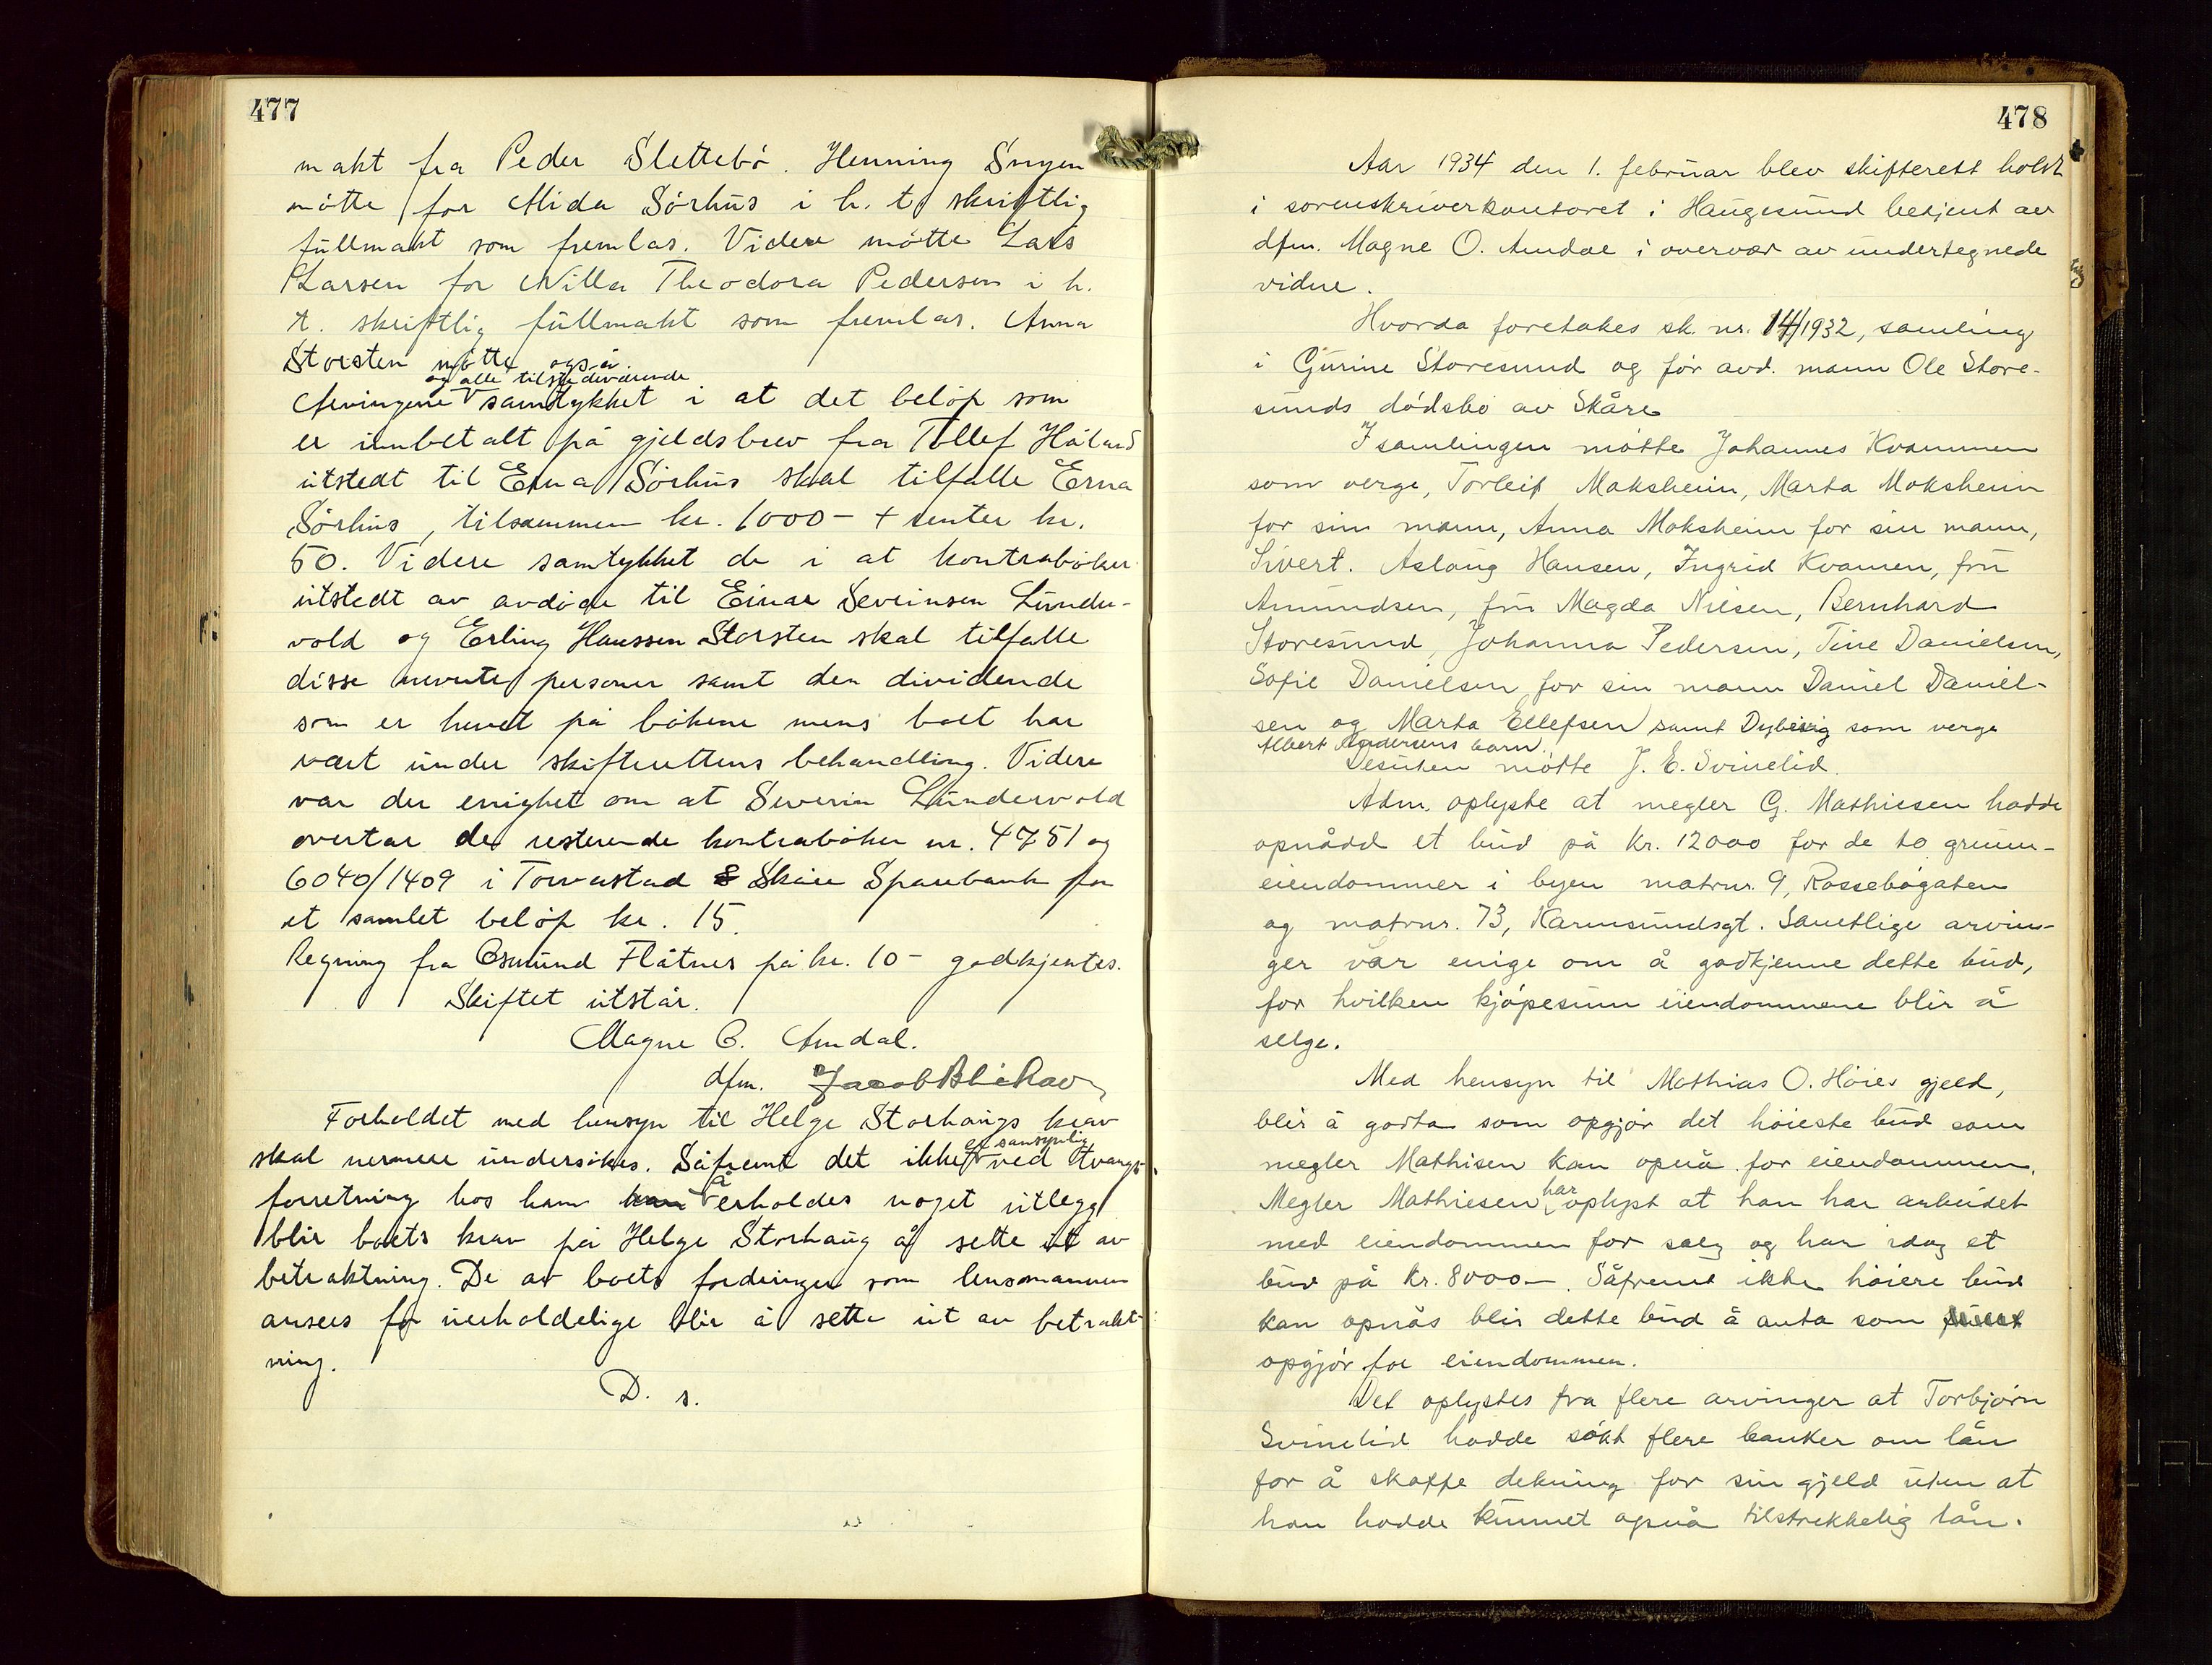 477
makt fra Peder Slettebö. Henning Snyen
mötte for Alida Sörhus i h. t. skriftlig
fullmakt som fremlas. Videre mötte Lars
Larsen for Nilla Theodora Pedersen i h.
t. skriftlig fullmakt som fremlas. Anna
Storsten mötte også.
og alle tilstedeværende
Arvingene samtykket i at det belöp som
er innbetalt på gjeldsbrev fra Tollef Håland
utstedt til Erna Sörhus skal tilfalle Erna
Sörhus, tilsammen kr. 1000 - + renter kr.
50. Videre samtykket de i at kontraböker
utstedt av avdöde til Einar Severinsen Lunde-
vold og Erling Hanssen Storsten skal tilfalle
disse nevnte personer samt den dividende
som er hevet på bökene mens boet har
vært under skifterettens behandling. Videre
var der enighet om at Severin Lundervold
overtar de resterende kontraböker nr. 4751 og
6040/1409 i Torvastad & Skåre Sparebank for
et samlet belöp kr. 15.
Regning fra Osmund Flåtnes på kr. 10 - godkjentes.
Skiftet utstår.
Magne O. Amdal.
dfm.
Forholdet med hensyn til Helge Storhaugs krav
er sansynlig
skal nermere undersökes. Såfremt det ikke ved tvangs-
å
forretning hos ham kan erholdes noget utlegg
blir boets krav på Helge Storhaug å sette ut av
betraktning. De av boets fordringer som lensmannen
ansees for uerholdelige blir å sette ut av betrakt-
ning.
D. s.
478
Aar 1934 den 1. februar blev skifterett holdt
i sorenskriverkontoret i Haugesund betjent av
dfm. Magne O. Amdal i overvær av undertegnede
vidne.
Hvorda foretokes sk. nr. 14/1932, samling
i Gurine Storesund og för avd. mann Ole Store-
sunds dödsbo av Skåre
I samlingen mötte Johannes Kvammen
som verge, Torleif Moksheim, Marta Moksheim
for sin mann, Anna Moksheim for sin mann,
Sivert. Aslaug Hansen, Ingrid Kvamen, fru
Amundsen, fru Magda Nilsen, Bernhard
Storesund, Johanna Pedersen, Tine Danielsen,
Sofie Danielsen for sin mann Daniel Daniel-
sen og Marta Ellefsen samt Dybvig som verge
Albert Andersens barn.
Desuten mötte J. E. Svinelid.
Adm. oplyste at megler G. Mathiesen hadde
opnådd et bud på kr. 12000 for de to grunn-
eiendommer i byen matrnr. 9, Rossebögaten
og matrnr. 73, Karmsundsgt. Samtlige arvin-
ger var enige om å godkjenne dette bud,
for hvilken kjöpesum eiendommene blir å
selge.
Med hensyn til Mathias O. Höies gjeld,
blir å godta som opgjör det höieste bud som
megler Mathisen kan opnå for eiendommen.
har
Megler Mathiesen oplyst at han har arbeidet
med eiendommen for salg og har idag et
bud på kr. 8000 -. Såfremt ikke höiere bud
kan opnås blir dette bud å anta som
opgjör for eiendommen.
Det oplystes fra flere arvinger at Torbjörn
Svinelid hadde sökt flere banker om lån
for å skaffe dekning for sin gjeld uten at
han hadde kunnet opnå tilstrekkelig lån.